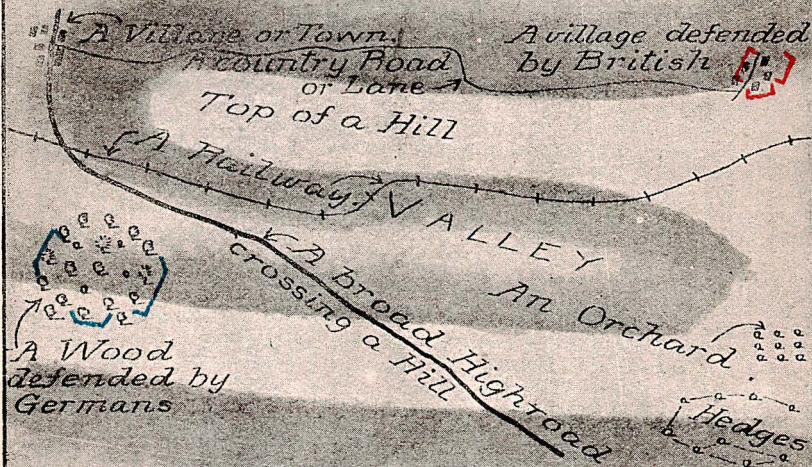 A Village or Town.
A country Road
or Lane
A village defended
by British
Top of a Hill
A Railway.
VALLEY
A broad Highroad
crossing a Hill
An Orchard
A Wood
defended by
Germans
Hedges